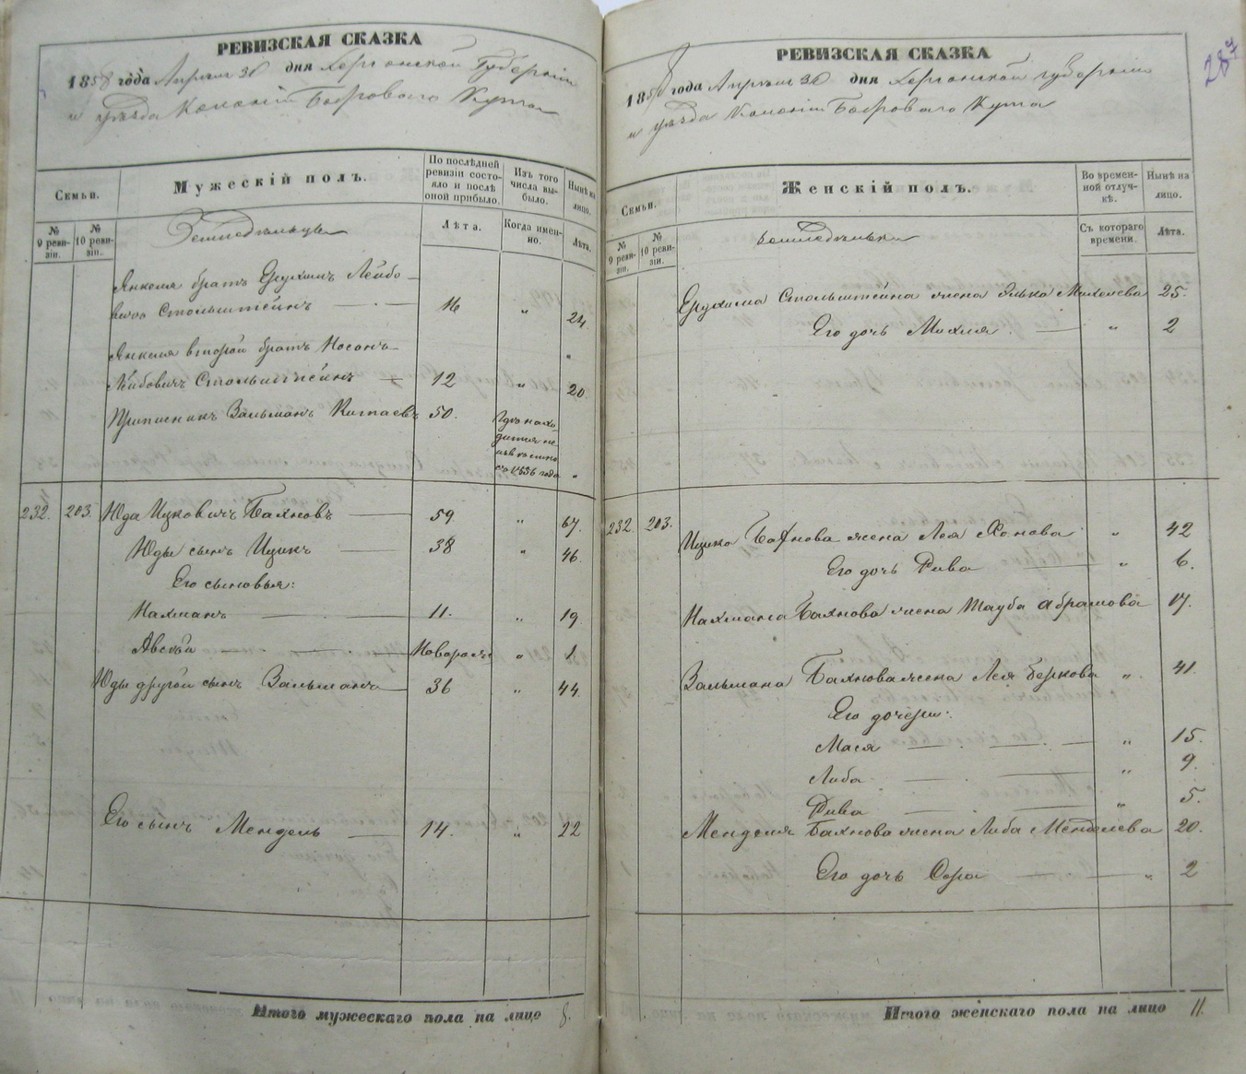 РЕВИЗСКАЯ СКАЗКА
1858 года Апреля 30 дня Херсонской Губерніи
и уѣзда Колоніи Боброваго Кута
Семьи.
Мужескій полъ.
По послѣдней ревизіи состояло и послѣ оной прибыло.
Изъ того числа выбыло.
Нынѣ на лицо.
№ 9 ревизіи.
№ 10 ревизіи.
Земледѣльцы
Лѣта.
Когда именно.
Лѣта.
Янкеля братъ Ерухимъ Лейбо-
вичъ Стольштейнъ 16 " 24
Янкеля второй братъ Носонъ "
Лейбовичъ Стольштейнъ 12 " 20
Приписникъ Зальманъ Китаевъ 50.
гдѣ нахо-
дится не-
извѣстно
съ 1836 года "
232. 203. Юда Ицковичъ Бахновъ 59 " 67.
Юды сынъ Ицикъ 38 " 46
Его сыновья:
Нахманъ 11. " 19
Авсѣй Новорож " 1
Юды другой сынъ Зальманъ 36 " 44
Его сынъ Мендель 14. " 22
Итого мужескаго пола на лицо 8.
284
РЕВИЗСКАЯ СКАЗКА
1858 года Апреля 30 дня Херсонской губерніи
и уѣзда Колоніи Боброваго Кута
Семьи.
Женскій полъ.
Во временной отлучкѣ.
Нынѣ на лицо.
№ 9 ревизіи.
№ 10 ревизіи.
Земледѣльки
Съ котораго времени.
Лѣта.
Ерухима Стольштейна жена Элька Михелева 25.
Его дочь Михля " 2
232 203. Ицика Бахнова жена Лея Хонова " 42
Его дочь Рива " 6.
Нахмана Бахнова жена Тауба Абрамова 17.
Зальмана Бахнова жена Лея Беркова " 41.
Его дочери:
Мася " 15.
Либа " 9.
Рива " 5.
Менделя Бахнова жена Либа Менделева 20.
Его дочь Сора " 2
Итого женскаго пола на лицо 11.